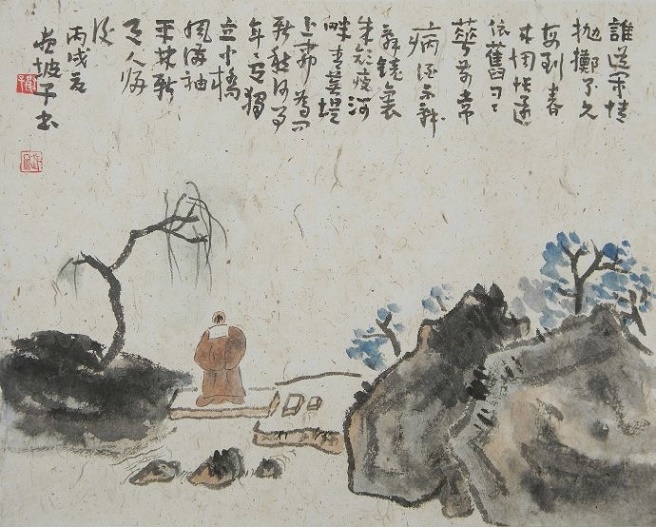 誰道閒情
拋擲了久
每到春
来惆悵還
依舊日日
華前常
病酒不
辭鏡裏
朱顏瘦河
畔青蕪堤
上柳為問
新愁何事
年年有獨
立小橋
風滿袖
平林新
月人歸
後
丙戌夏
坡子書